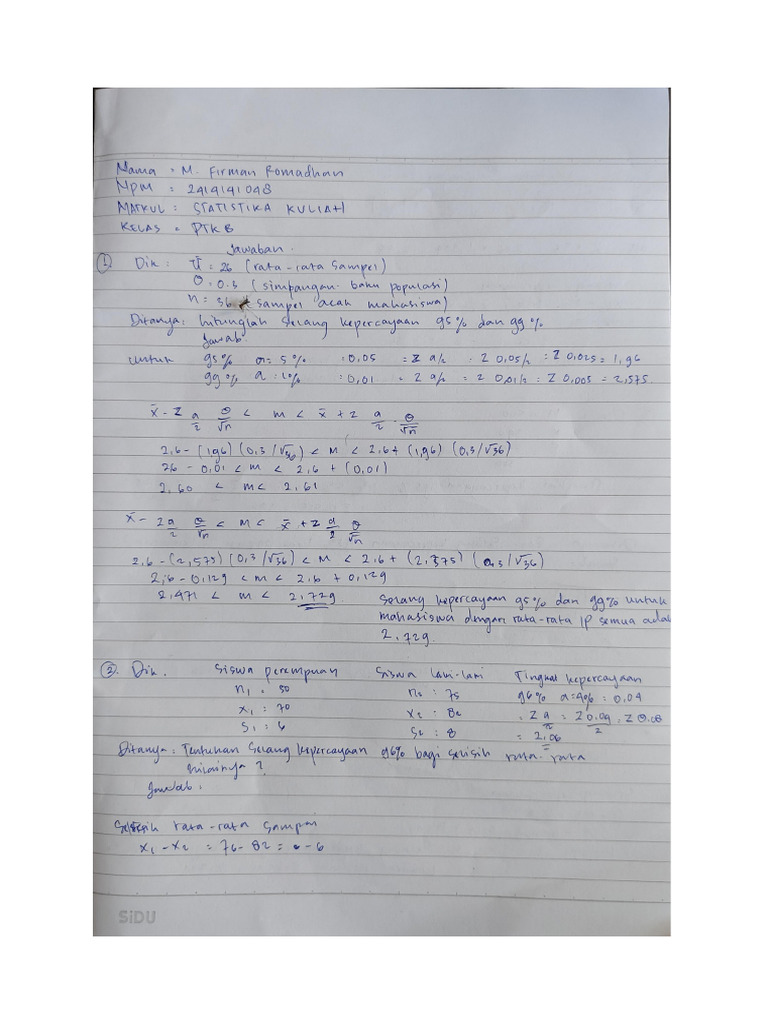 Nama : M. Firman Romadhan
NPM : 2414141048
MATKUL : STATISTIKA KULIAH
KELAS : PTK B
Jawaban.
① Dik : x̄ = 26 (rata-rata sampel)
σ = 0.3 (simpangan baku populasi)
n = 36 (sampel acak mahasiswa)
Ditanya : hitunglah selang kepercayaan 95% dan 99%
Jawab.
Untuk 95% a = 5% : 0,05 = Z a/2 . Z 0,05/2 : Z 0,025 = 1,96
99% a : 1% : 0,01 = Z a/2 = Z 0,01/2 = Z 0,005 = 2,575
x̄ - Z a/2 σ/√n < m < x̄ + Z a/2 . σ/√n
2,6 - (1,96) (0,3/√36) < M < 2,6 + (1,96) (0,3/√36)
26 - 0,01 < m < 2,6 + (0,01)
2,60 < m < 2,61
x̄ - Z a/2 σ/√n < m < x̄ + Z a/2 σ/√n
2,6 - (2,575) (0,3/√36) < M < 2,6 + (2,575) (0,3/√36)
2,6 - 0,129 < m < 2,6 + 0,129
2,471 < m < 2,729. Selang kepercayaan 95% dan 99% untuk
mahasiswa dengan rata-rata IP semua adal
2,729.
②. Dik. Siswa perempuan Siswa laki-laki Tingkat kepercayaan
n1 : 50 n2 : 75 96% a = 4% : 0,04
x1 : 70 x2 : 82 = Z a/2 = Z 0,04/2, Z 0.08
S1 : 6 S2 : 8 = 2,06
Ditanya : Tentukan Selang kepercayaan 96% bagi selisih rata-rata
nilainya ?
Jawab :
Selisih rata-rata Sampel
x1 - x2 = 76 - 82 = -6
SiDU